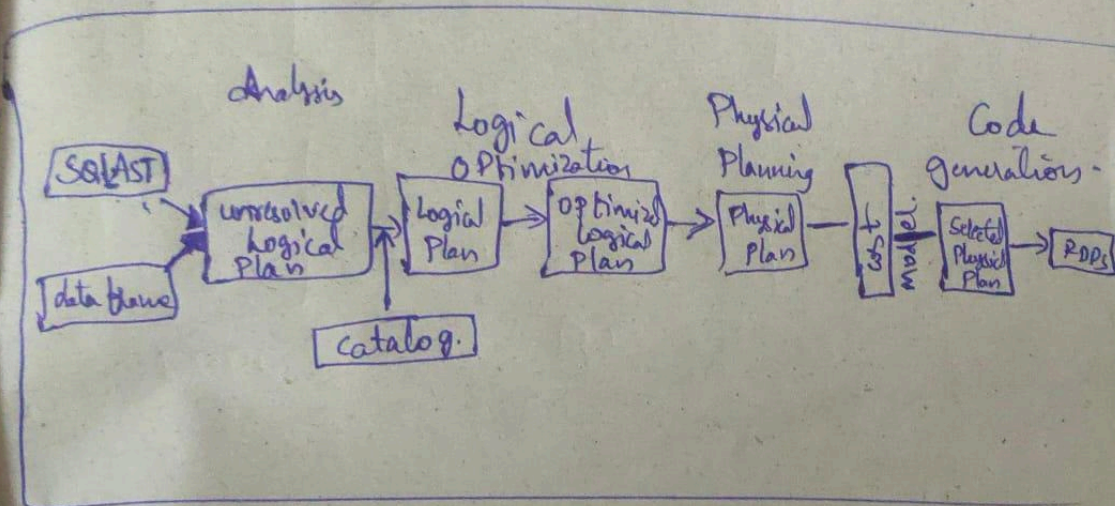 Analysis
Logical
Optimization
Physical
Planning
Code
generations.
SQLAST
data frame
unresolved
Logical
Plan
catalog.
Logical
Plan
Optimized
Logical
Plan
Physical
Plan
Cost
Model.
Selected
Physical
Plan
RDDs